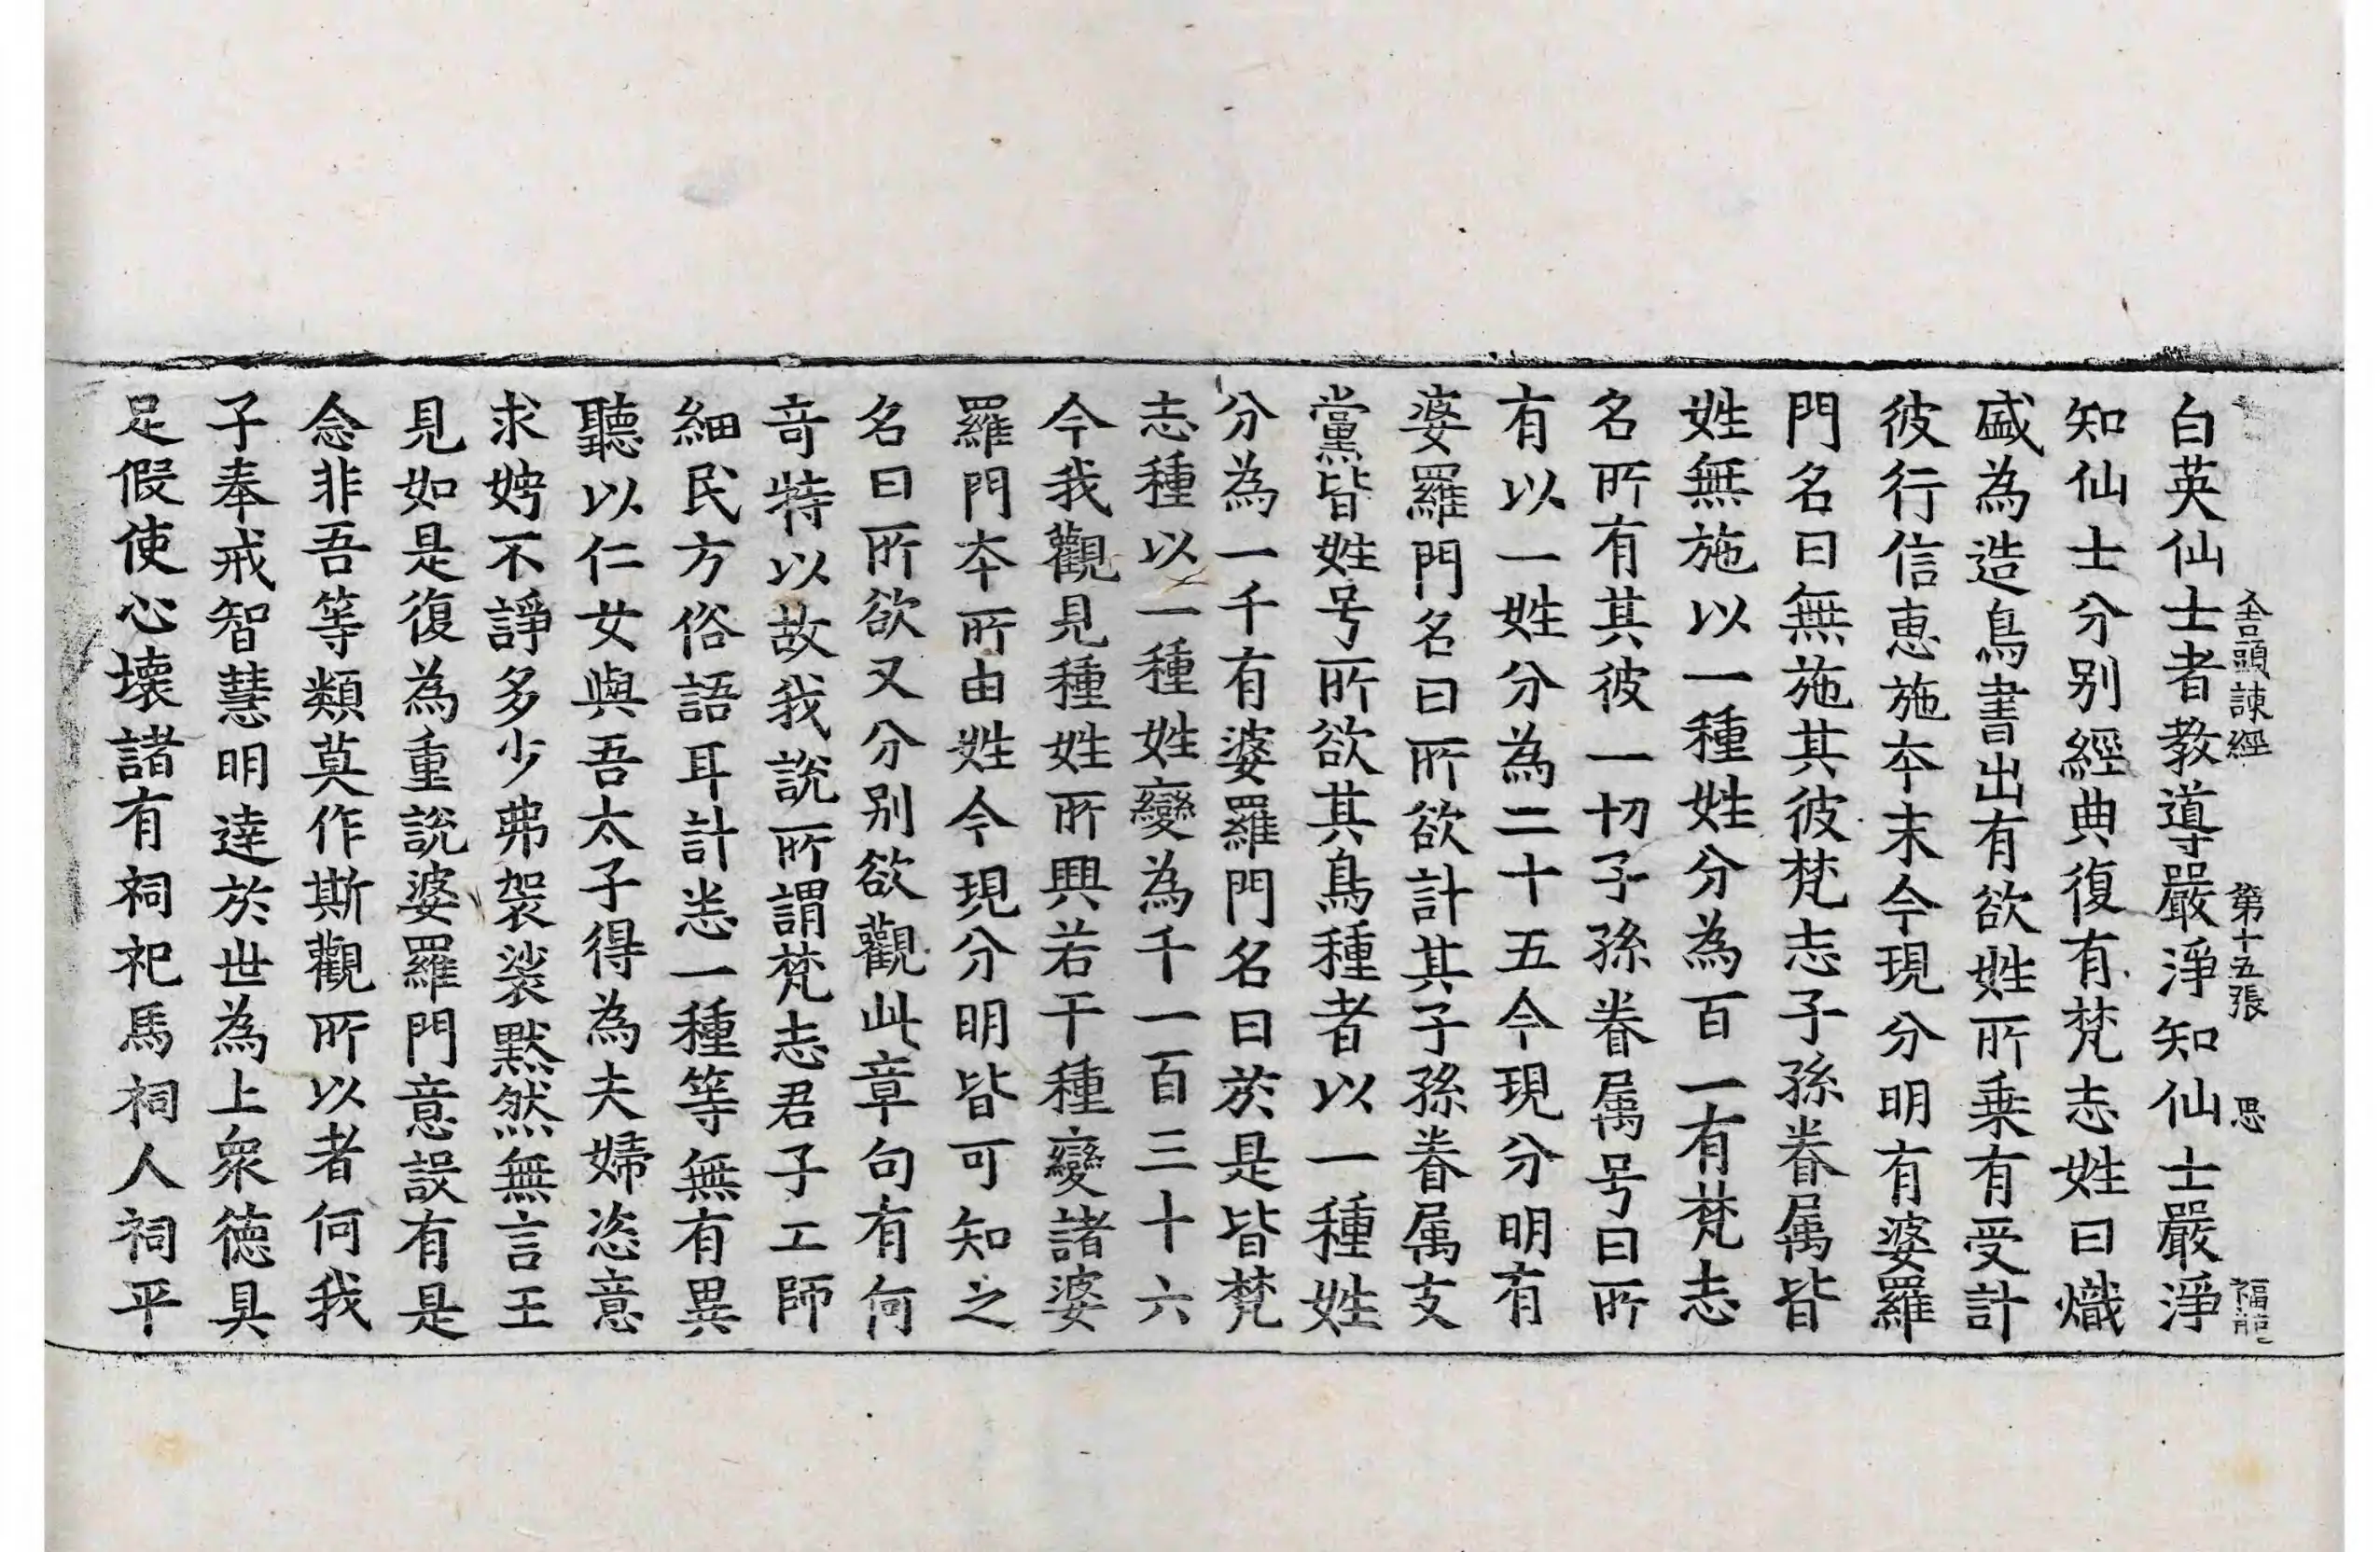 舍頭諫經 第十五張 思 福龍
白英仙士者教導嚴淨知仙士嚴淨
知仙士分別經典復有梵志姓曰熾
盛為造鳥書出有欲姓所乗有受計
彼行信惠施夲末今現分明有婆羅
門名曰無施其彼梵志子孫眷属皆
姓無施以一種姓分為百一有梵志
名所有其彼一切子孫眷属号曰所
有以一姓分為二十五今現分明有
婆羅門名曰所欲計其子孫眷属支
黨皆姓号所欲其鳥種者以一種姓
分為一千有婆羅門名曰於是皆梵
志種以一種姓變為千一百三十六
今我觀見種姓所興若干種變諸婆
羅門夲所由姓今現分明皆可知之
名曰所欲又分別欲觀此章句有何
竒特以故我說所謂梵志君子工師
細民方俗語耳計恙一種等無有異
聽以仁女與吾太子得為夫婦恣意
求娉不諍多少弗袈裟黙然無言王
見如是復為重說婆羅門意誤有是
念非吾等類莫作斯觀所以者何我
子奉戒智慧明達於世為上衆徳具
足假使心壊諸有祠祀馬祠人祠平